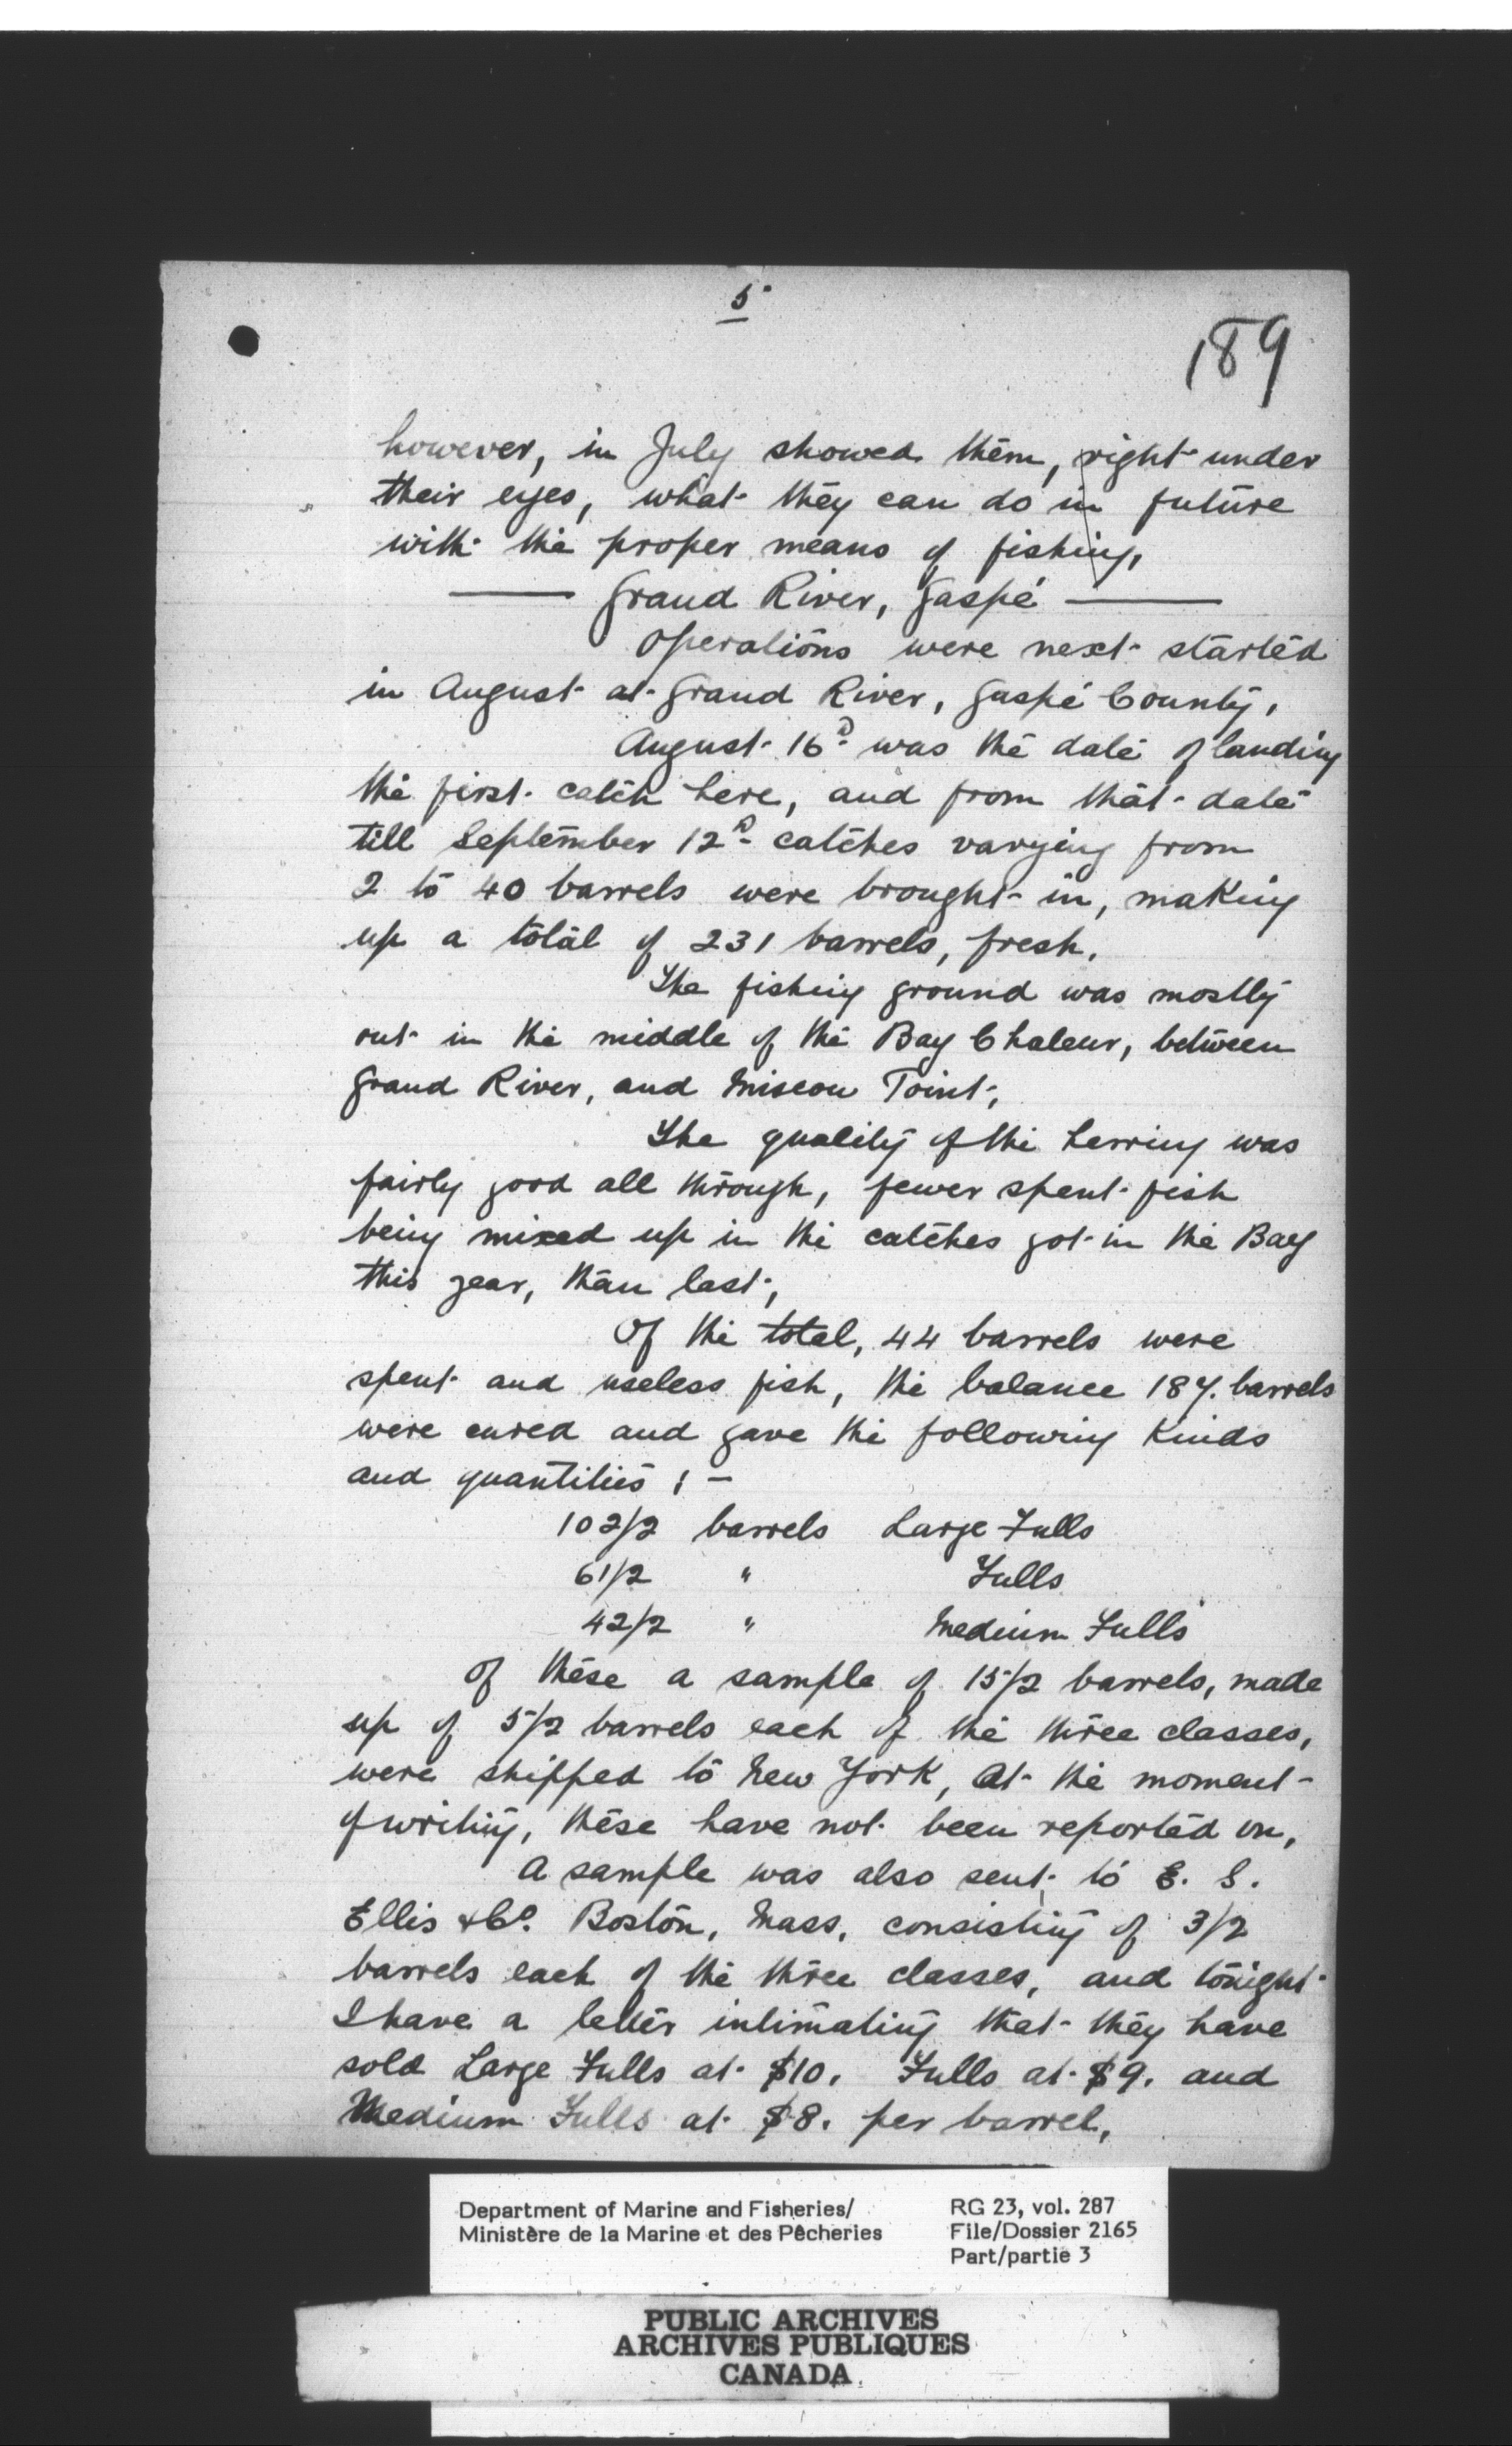 5
189
however, in July showed them, right under
their eyes, what they can do in future
with the proper means of fishing,
— Grand River, Gaspé —
Operations were next started
in August at Grand River, Gaspé County,
August 16th was the date of landing
the first catch here, and from that date
till September 12th catches varying from
2 to 40 barrels were brought in, making
up a total of 231 barrels, fresh.
The fishing ground was mostly
out in the middle of the Bay Chaleur, between
Grand River, and Miscou Point,
The quality of the herring was
fairly good all through, fewer spent fish
being mixed up in the catches got in the Bay
this year, than last,
Of the total, 44 barrels were
spent and useless fish, the balance 187. barrels
were cured and gave the following kinds
and quantities : —
102/2 barrels Large Fulls
61/2 " Fulls
42/2 " Medium Fulls
Of these a sample of 15/2 barrels, made
up of 5/2 barrels each of the three classes,
were shipped to New York, At the moment
of writing, these have not been reported on,
A sample was also sent to E. S.
Ellis & Co. Boston, Mass, consisting of 3/2
barrels each of the three classes, and tonight
I have a letter intimating that they have
sold Large Fulls at $10. Fulls at $9. and
Medium Fulls at $8. per barrel,
Department of Marine and Fisheries/
Ministère de la Marine et des Pêcheries
RG 23, vol. 287
File/Dossier 2165
Part/partie 3
PUBLIC ARCHIVES
ARCHIVES PUBLIQUES
CANADA